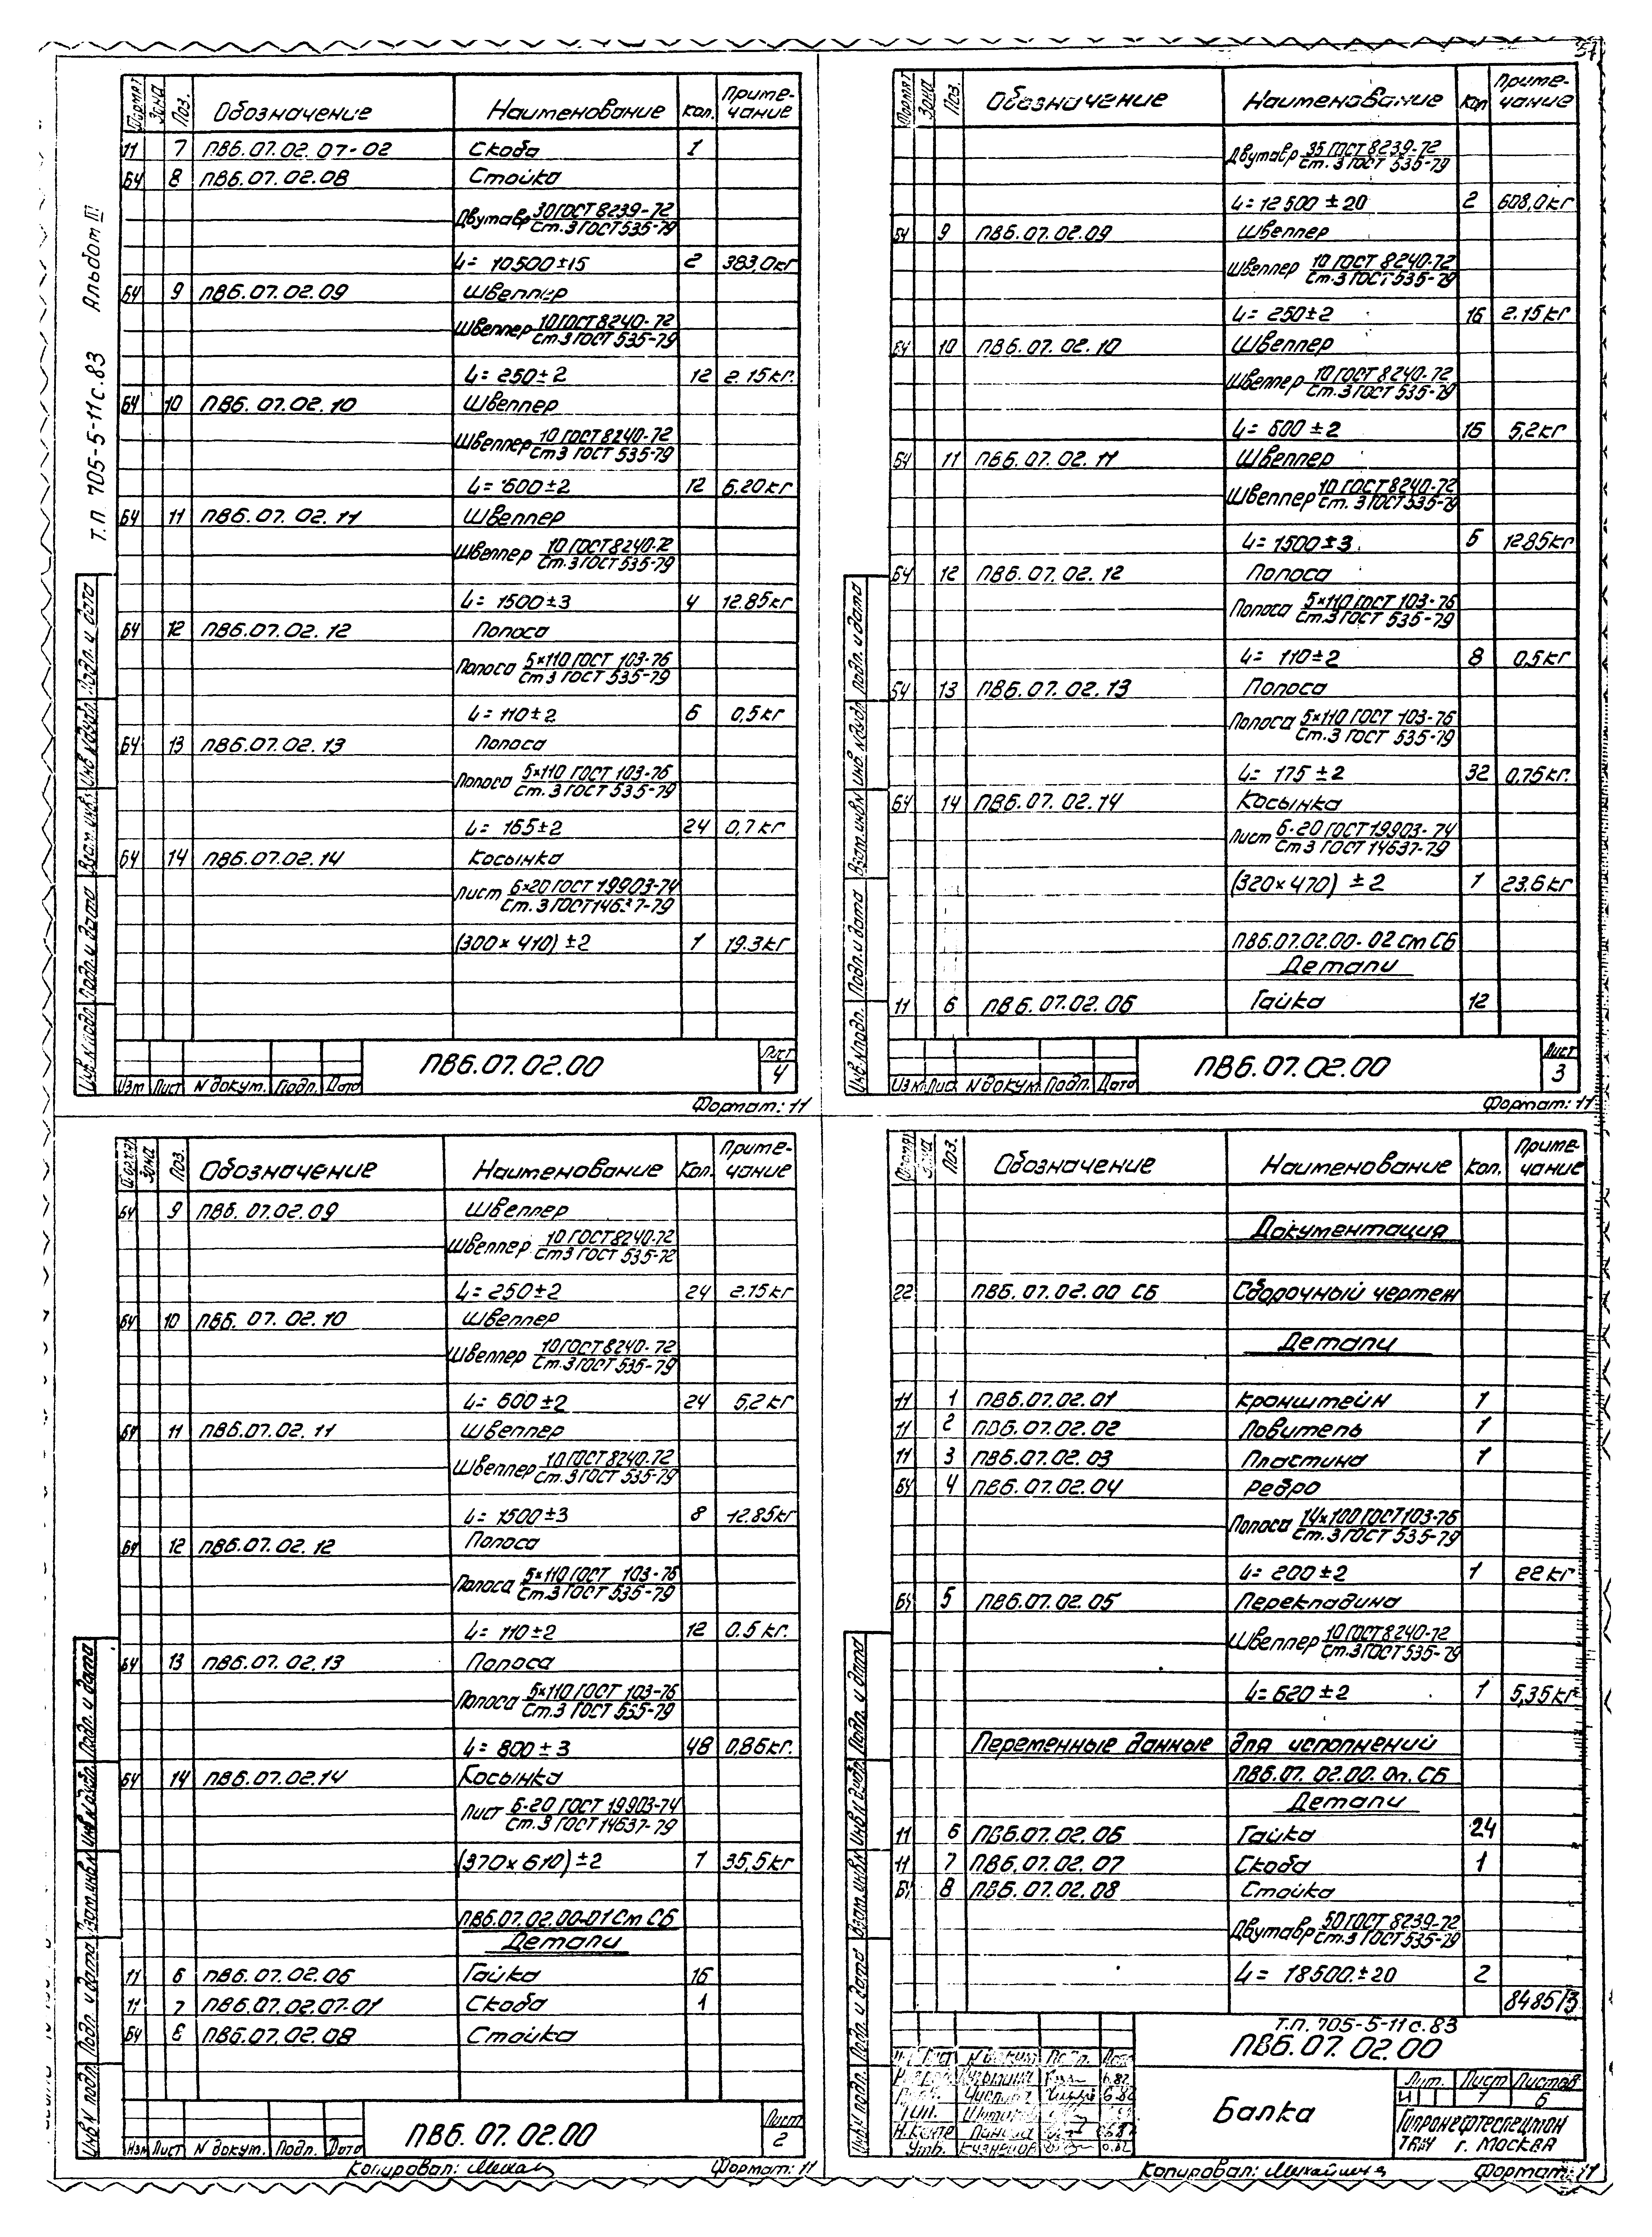 57
т.п 705-5-11с.83 Альбом III
Формат Зона Поз. Обозначение Наименование Кол. Приме-
чание
11 7 ПВ6.07.02.07-02 Скоба 1
БЧ 8 ПВ6.07.02.08 Стойка
Двутавр 30 ГОСТ 8239-72
Ст.3 ГОСТ 535-79
L= 10500±15 2 383,0кг
БЧ 9 ПВ6.07.02.09 Швеллер
Швеллер 10 ГОСТ 8240-72
Ст.3 ГОСТ 535-79
L= 250±2 12 2.15кг.
БЧ 10 ПВ6.07.02.10 Швеллер
Швеллер 10 ГОСТ 8240-72
Ст3 ГОСТ 535-79
L= 600±2 12 5.20кг
БЧ 11 ПВ6.07.02.11 Швеллер
Швеллер 10 ГОСТ 8240-72
Ст.3 ГОСТ 535-79
L= 1500±3 4 12.85кг
БЧ 12 ПВ6.07.02.12 Полоса
Полоса 5×110 ГОСТ 103-76
Ст3 ГОСТ 535-79
L= 110±2 6 0,5кг
БЧ 13 ПВ6.07.02.13 Полоса
Полоса 5×110 ГОСТ 103-76
Ст.3 ГОСТ 535-79
L= 165±2 24 0,7кг
БЧ 14 ПВ6.07.02.14 Косынка
Лист 6×20 ГОСТ 19903-74
Ст.3 ГОСТ 14637-79
(300×410)±2 1 19.3кг
Инв.N подл. Подп. и дата Взам.инв.N Инв.N дубл. Подп. и дата
Изм Лист N докум. Подп. Дата
ПВ6.07.02.00
Лист
4
Формат: 11
Формат Зона Поз. Обозначение Наименование Кол Приме-
чание
Двутавр 35 ГОСТ 8239-72
Ст.3 ГОСТ 535-79
L= 12600±20 2 608,0кг
БЧ 9 ПВ6.07.02.09 Швеллер
Швеллер 10 ГОСТ 8240-72
Ст.3 ГОСТ 535-79
L= 250±2 16 2.15кг
БЧ 10 ПВ6.07.02.10 Швеллер
Швеллер 10 ГОСТ 8240-72
Ст.3 ГОСТ 535-79
L= 600±2 16 5,2кг
БЧ 11 ПВ6.07.02.11 Швеллер
Швеллер 10 ГОСТ 8240-72
Ст. 3 ГОСТ 535-79
L= 1500±3 6 12.85кг
БЧ 12 ПВ6.07.02.12 Полоса
Полоса 5×110 ГОСТ 103-76
Ст.3 ГОСТ 535-79
L= 110±2 8 0,5кг
БЧ 13 ПВ6.07.02.13 Полоса
Полоса 5×110 ГОСТ 103-76
Ст.3 ГОСТ 535-79
L= 175±2 32 0,75кг.
БЧ 14 ПВ6.07.02.14 Косынка
Лист 6-20 ГОСТ 19903-74
Ст 3 ГОСТ 14637-79
(320×470) ±2 1 23.6кг
ПВ6.07.02.00-02 ст СБ
Детали
11 6 ПВ6.07.02.06 Гайка 12
Инв.N подл. Подп. и дата Взам.инв.N Инв.N дубл. Подп. и дата
Изм Лис N докум. Подп. Дата
ПВ6.07.02.00
Лист
3
Формат: 11
Формат Зона Поз. Обозначение Наименование Кол. Приме-
чание
БЧ 9 ПВ6.07.02.09 Швеллер
Швеллер 10 ГОСТ 8240-72
Ст3 ГОСТ 535-72
L= 250±2 24 2.15кг
БЧ 10 ПВ6.07.02.10 Швеллер
Швеллер 10 ГОСТ 8240-72
Ст.3 ГОСТ 535-79
L= 600±2 24 5,2кг
БЧ 11 ПВ6.07.02.11 Швеллер
Швеллер 10 ГОСТ 8240-72
Ст.3 ГОСТ 535-79
L= 1500±3 8 12.85кг
БЧ 12 ПВ6.07.02.12 Полоса
Полоса 5×110 ГОСТ 103-76
Ст.3 ГОСТ 535-79
L= 110±2 12 0.5кг.
БЧ 13 ПВ6.07.02.13 Полоса
Полоса 5×110 ГОСТ 103-76
Ст.3 ГОСТ 535-79
L= 800±3 48 0,86кг.
БЧ 14 ПВ6.07.02.14 Косынка
Лист 6-20 ГОСТ 19903-74
Ст.3 ГОСТ 14637-79
(370×610)±2 1 35,5кг
ПВ6.07.02.00-01 Ст СБ
Детали
11 6 ПВ6.07.02.06 Гайка 16
11 7 ПВ6.07.02.07-01 Скоба 1
БЧ 8 ПВ6.07.02.08 Стойка
Инв.N подл. Подп. и дата Взам.инв.N Инв.N дубл. Подп. и дата
Изм Лист N докум. Подп. Дата
ПВ6.07.02.00
Лист
2
Копировал: Формат: 11
Формат Зона Поз. Обозначение Наименование Кол. Приме-
чание
Документация
22 ПВ6.07.02.00 СБ Сборочный чертеж
Детали
11 1 ПВ6.07.02.01 Кронштейн 1
11 2 ПВ6.07.02.02 Ловитель 1
11 3 ПВ6.07.02.03 Пластина 1
БЧ 4 ПВ6.07.02.04 Ребро
Полоса 14×100 ГОСТ 103-76
Ст.3 ГОСТ 535-79
L= 200±2 1 22кг
БЧ 5 ПВ6.07.02.05 Перекладина
Швеллер 10 ГОСТ 8240-72
Ст.3 ГОСТ 535-79
L= 620±2 1 5,35кг
Переменные данные для исполнений
ПВ6.07.02.00.Оп.СБ
Детали
11 6 ПВ6.07.02.06 Гайка 24
11 7 ПВ6.07.02.07 Скоба 1
БЧ 8 ПВ6.07.02.08 Стойка
Двутавр 50 ГОСТ 8239-72
Ст.3 ГОСТ 535-79
L= 18500±20 2
8485/3
Инв.N подл. Подп. и дата Взам.инв.N Инв.N дубл. Подп. и дата
т.п. 705-5-11с.83
ПВ6.07.02.00
Лист N докум Подп. Дата
Н.контр
Утв. Кузнецов
Балка
Лит. Лист Листов
И 1 6
Гипронефтеспецмон
таж г. Москва
Копировал: Формат: 11